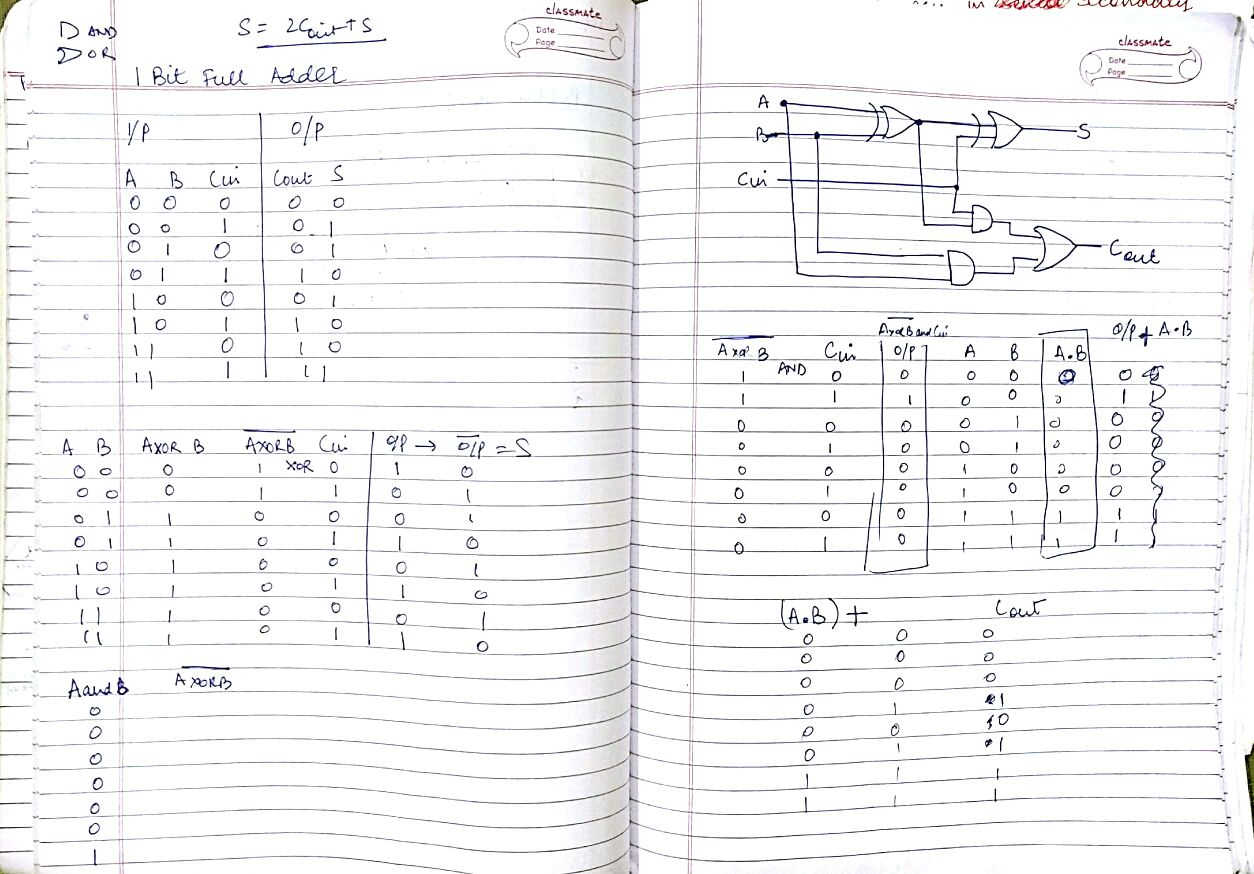 D AND
D OR
S = 2Cout + S
classmate
Date
Page
1 Bit Full Adder
I/P O/P
A B Cin Cout S
0 0 0 0 0
0 0 1 0 1
0 1 0 0 1
0 1 1 1 0
1 0 0 0 1
1 0 1 1 0
1 1 0 1 0
1 1 1 1 1
A B A XOR B A̅X̅O̅R̅B̅ XOR Cin O/P → O̅/̅P̅ = S
0 0 0 1 0 1 0
0 0 0 1 1 0 1
0 1 1 0 0 0 1
0 1 1 0 1 1 0
1 0 1 0 0 0 1
1 0 1 0 1 1 0
1 1 1 0 0 0 1
1 1 1 0 1 1 0
A and B A̅X̅O̅R̅B̅
0
0
0
0
0
0
1
in secondary
classmate
Date
Page
A
B
S
Cin
Cout
A̅x̅o̅r̅B̅ and Cin O/P of A.B
A̅x̅o̅r̅ ̅B̅ AND Cin O/P A B A.B
1 0 0 0 0 0 0
1 1 1 0 0 0 1
0 0 0 0 1 0 0
0 1 0 0 1 0 0
0 0 0 1 0 0 0
0 1 0 1 0 0 0
0 0 0 1 1 1 1
0 1 0 1 1 1 1
(A.B) + Cout
0 0 0
0 0 0
0 0 0
0 1 1
0 0 0
0 1 1
1 1 1
1 1 1